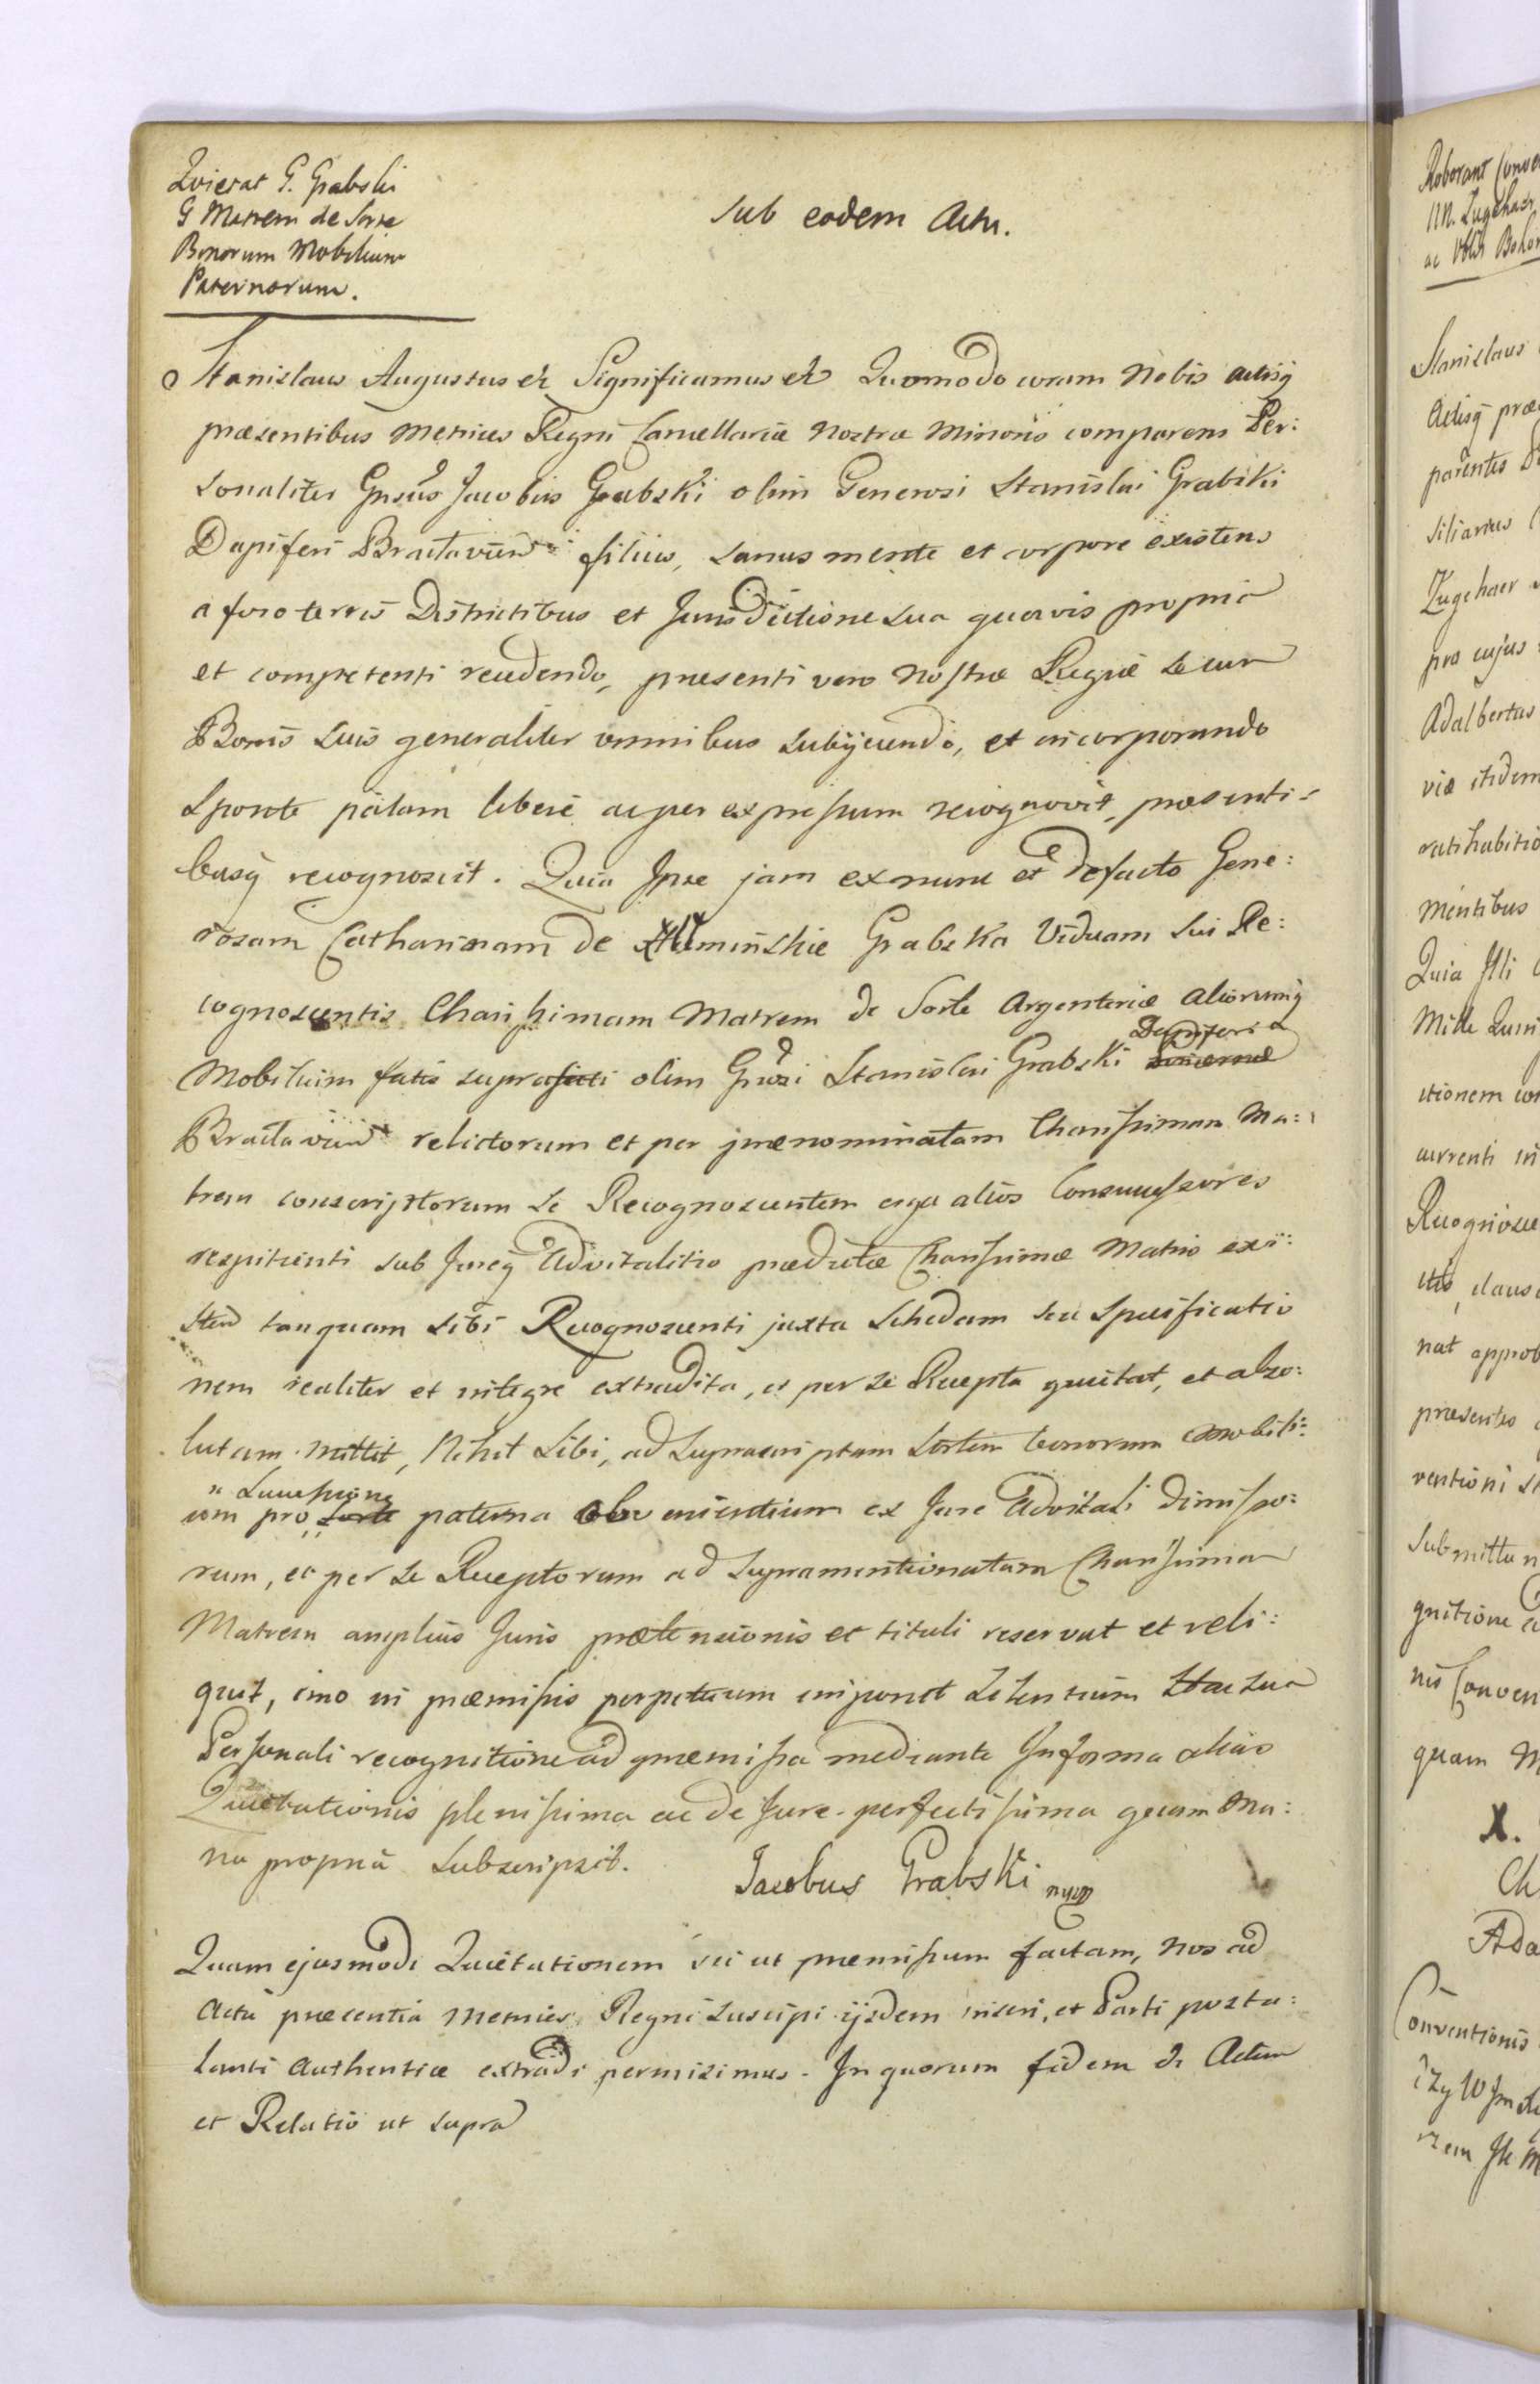 Quietat G. Grabski
G Matrem de Sorte
Bonorum Mobilium
Paternorum.
Sub eodem Actu.
Stanislaus Augustus et Significamus et Quomodo coram Nobis actisq
præsentibus Metrices Regni Cancellariæ Nostræ Minoris comparens Per:
sonaliter Gnsus Jacobus Grabski olim Generosi Stanislai Grabski
Dapiferi Braclavien filius, sanus mente et corpore existens
a foro terris Districtibus et Jurisdictione sua quavis propria
et competenti recedendo, præsenti vero Nostræ Regiæ se cum
Bonis suis generaliter omnibus subijciendo, et incorporando
Sponte palam libere ac per expressum recognovit, præsenti:
busq recognoscit. Quia Ipse jam ex nunc et de facto Gene:
rosam Catharinam de Grabska Viduam sui Re:
cognoscentis Charissimam Matrem de Sorte Argenteriæ aliorumq
Mobilium fatis suprafati olim Grosi Stanislai Grabski Dapiferi
Braclavien relictorum et per prænominatam Charissimam Ma:
trem conscriptorum se Recognoscentem erga alios Consuccessores
respicienti sub Jureq Advitalitio prædictæ Charissimæ Matris exi:
sten tanquam sibi Recognoscenti juxta Schedam seu Specificatio
nem realiter et integre extradita, et per se Recepta quietat, et abso:
lutam mittit, Nihil sibi, ad suprascriptam Sortem bonorum mobili:
um pro sorte Successione paterna obvenientium ex Jure Advitali dimisso:
rum, et per se Receptorum ad supramentionatam Charissimam
Matrem amplius Juris prætensionis et tituli reservat et reli:
quit, imo in præmissis perpetuum imponit silentium Hac sua
Personali recognitione ad præmissa mediante In forma alias
Quietationis plenissima ac de Jure perfectissima quam Ma:
nu propria subscripsit.
Jacobus Grabski mpp
Quam ejusmodi Quietationem sic ut præmissum factam, Nos ad
Acta præsentia Metrices Regni suscipi ijsdem inseri, et Parti postu:
lanti Authentice extradi permisimus. In quorum fidem et Actum
et Relatio ut supra
Roborant
NN.
Stanislaus
Actisq
siliarius
pro cujus
Adalbertus
ratihabitio
mentibus
Quia Illi
Mille
currenti in
nat approb
præsentes
submittu
quam
X.
Conventionis